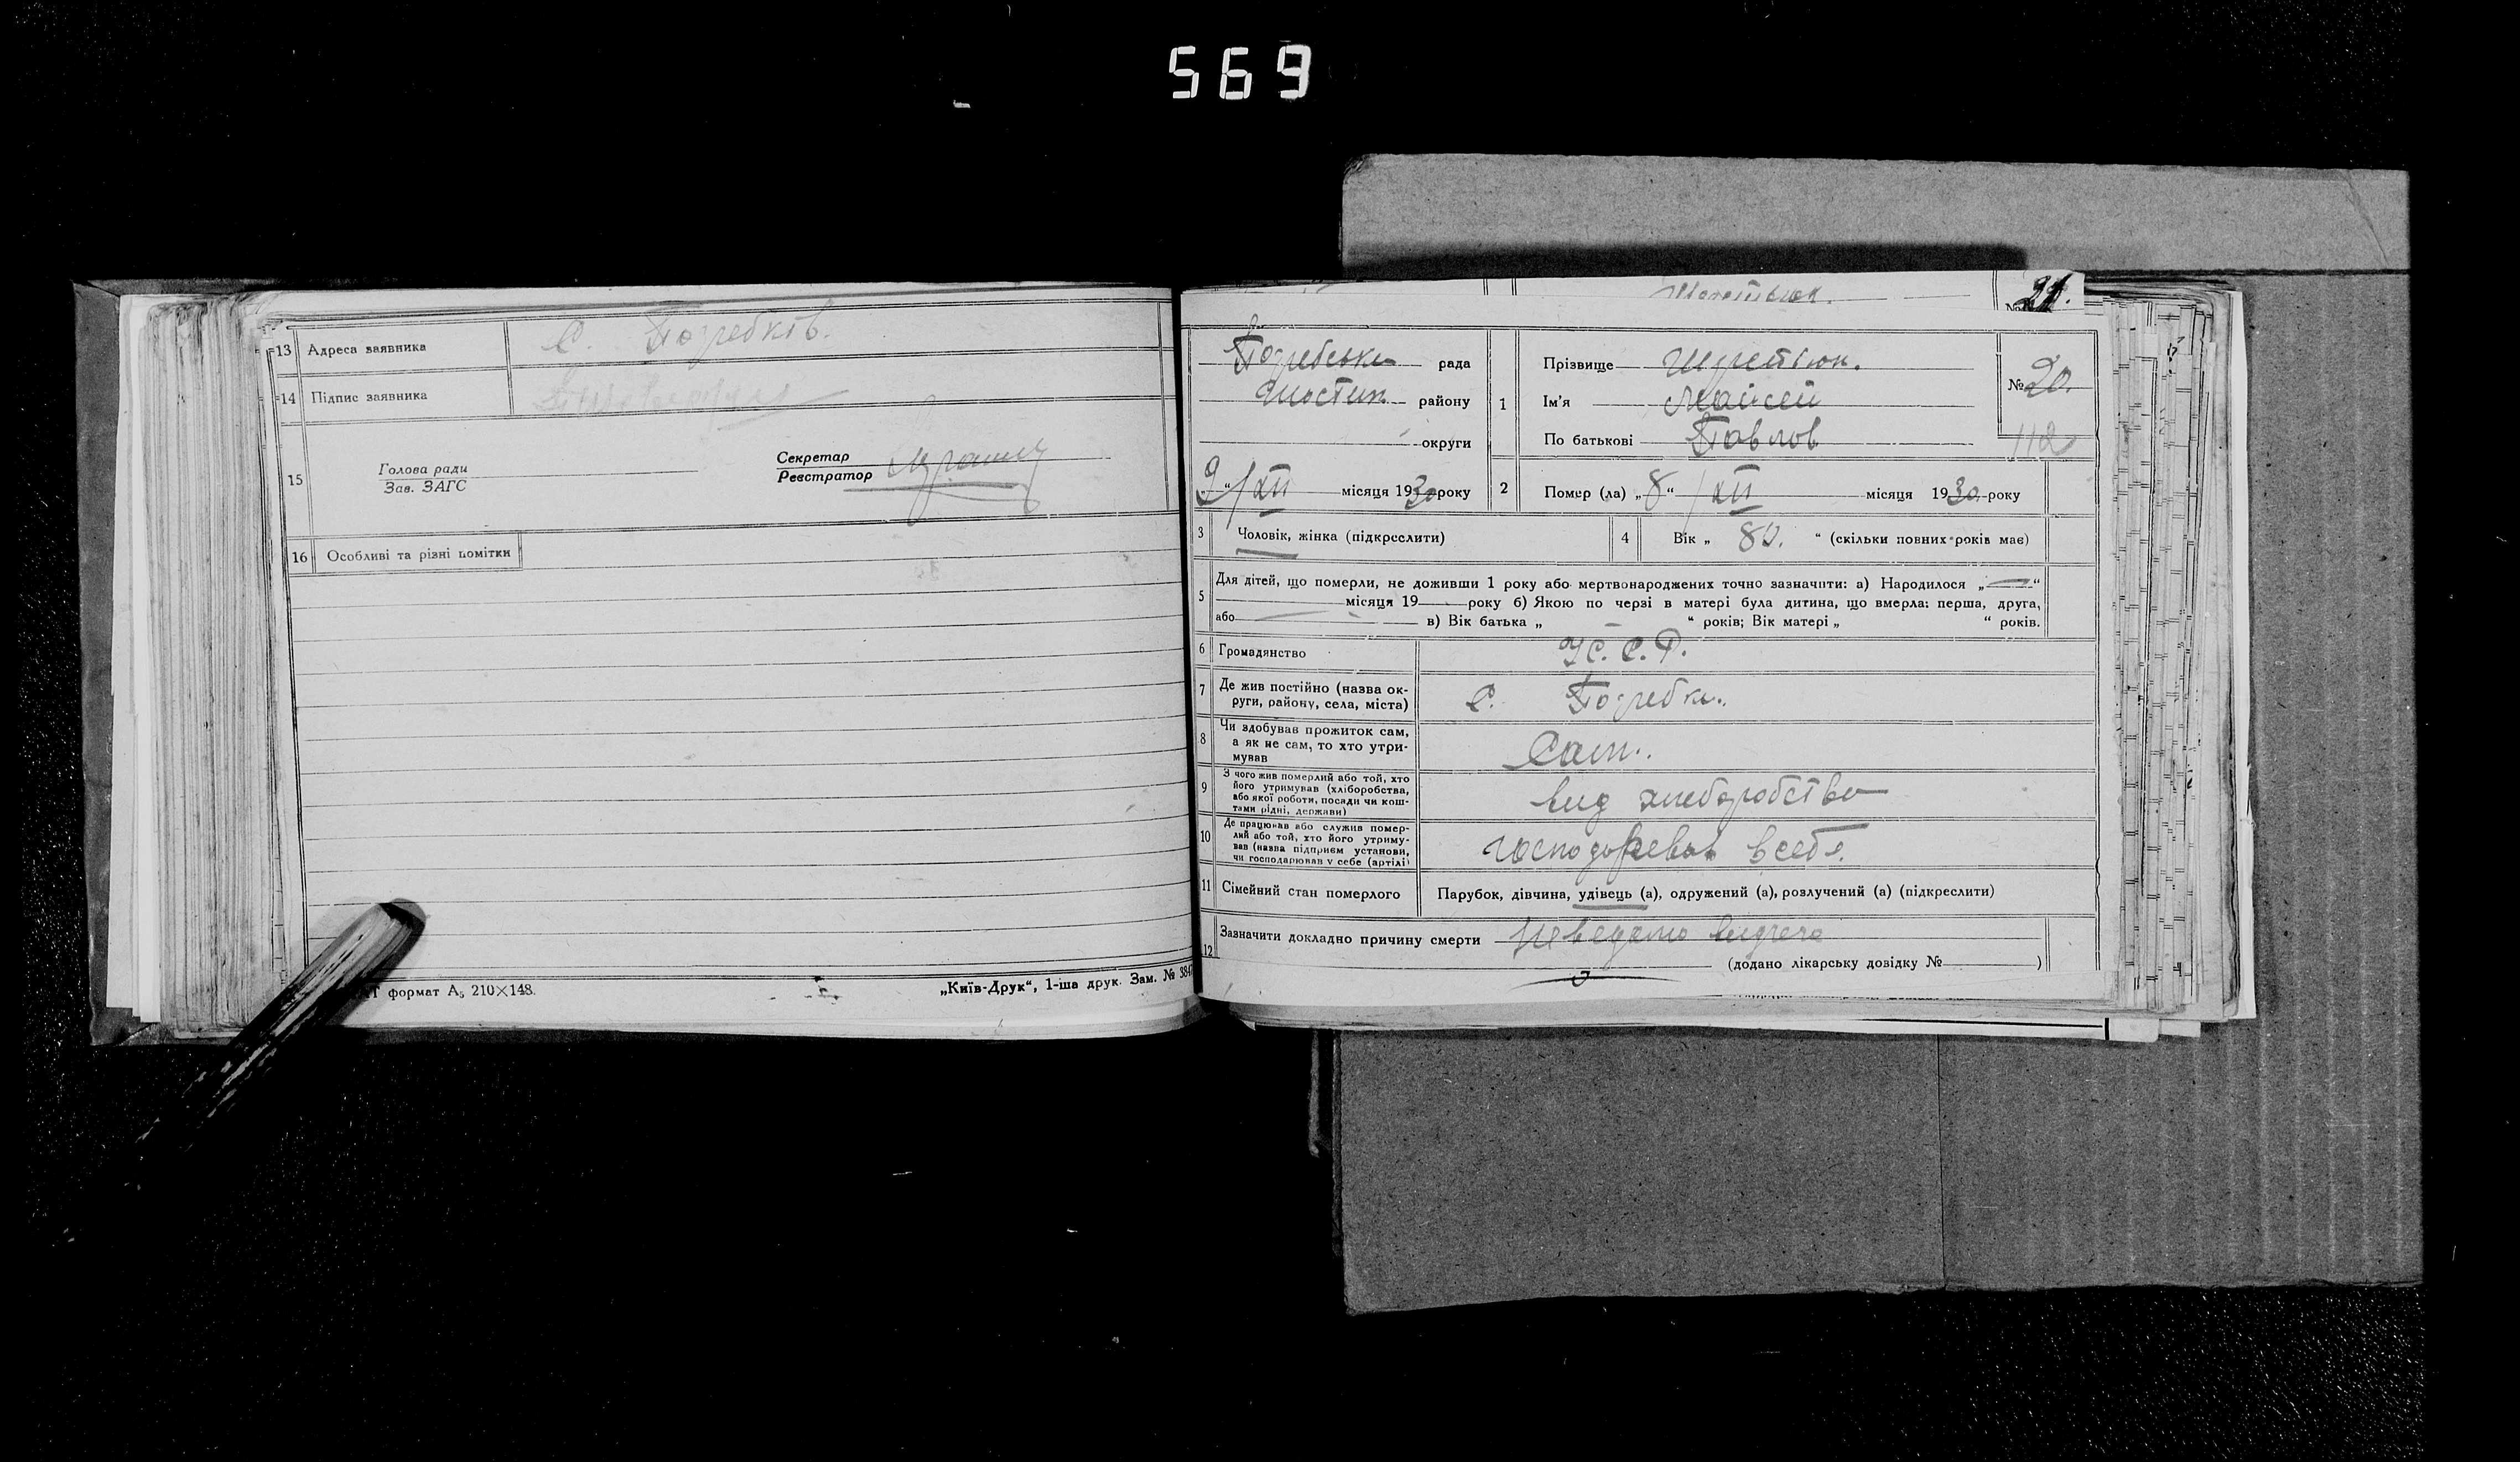 569
13 Адреса заявника С. Погребків.
14 Підпис заявника
15 Голова ради
Зав. ЗАГС
Секретар
Реєстратор
16 Особливі та різні помітки
формат А5 210×148.
„Київ-Друк“, 1-ша друк. Зам. № 3847
№ 21.
Погребська рада
Шостин району
округи
„9“/XII місяця 1930 року
1 Прізвище
Ім’я Мойсей
По батькові Павлов
№ 20.
112
2 Помер (ла) „8“/XII місяця 1930 року
3 Чоловік, жінка (підкреслити)
4 Вік „80.“ (скільки повних років має)
5 Для дітей, що померли, не доживши 1 року або мертвонароджених точно зазначити: а) Народилося „—“
місяця 19 — року б) Якою по черзі в матері була дитина, що вмерла: перша, друга,
або — в) Вік батька „ — “ років; Вік матері „ “ років.
6 Громадянство У.С.С.Р.
7 Де жив постійно (назва ок-
руги, району, села, міста) С. Погребки.
8 Чи здобував прожиток сам,
а як не сам, то хто утри-
мував Сам.
9 З чого жив померлий або той, хто
його утримував (хліборобства,
або якої роботи, посади чи кош-
тами рідні, держави) вид хлеборобства
10 Де працював або служив помер-
лий або той, хто його утриму-
вав (назва підприєм установи,
чи господарював у себе (артілі) господоревав всебе.
11 Сімейний стан померлого Парубок, дівчина, удівець (а), одружений (а), розлучений (а) (підкреслити)
12 Зазначити докладно причину смерти Неведомо видчего
(додано лікарську довідку № )